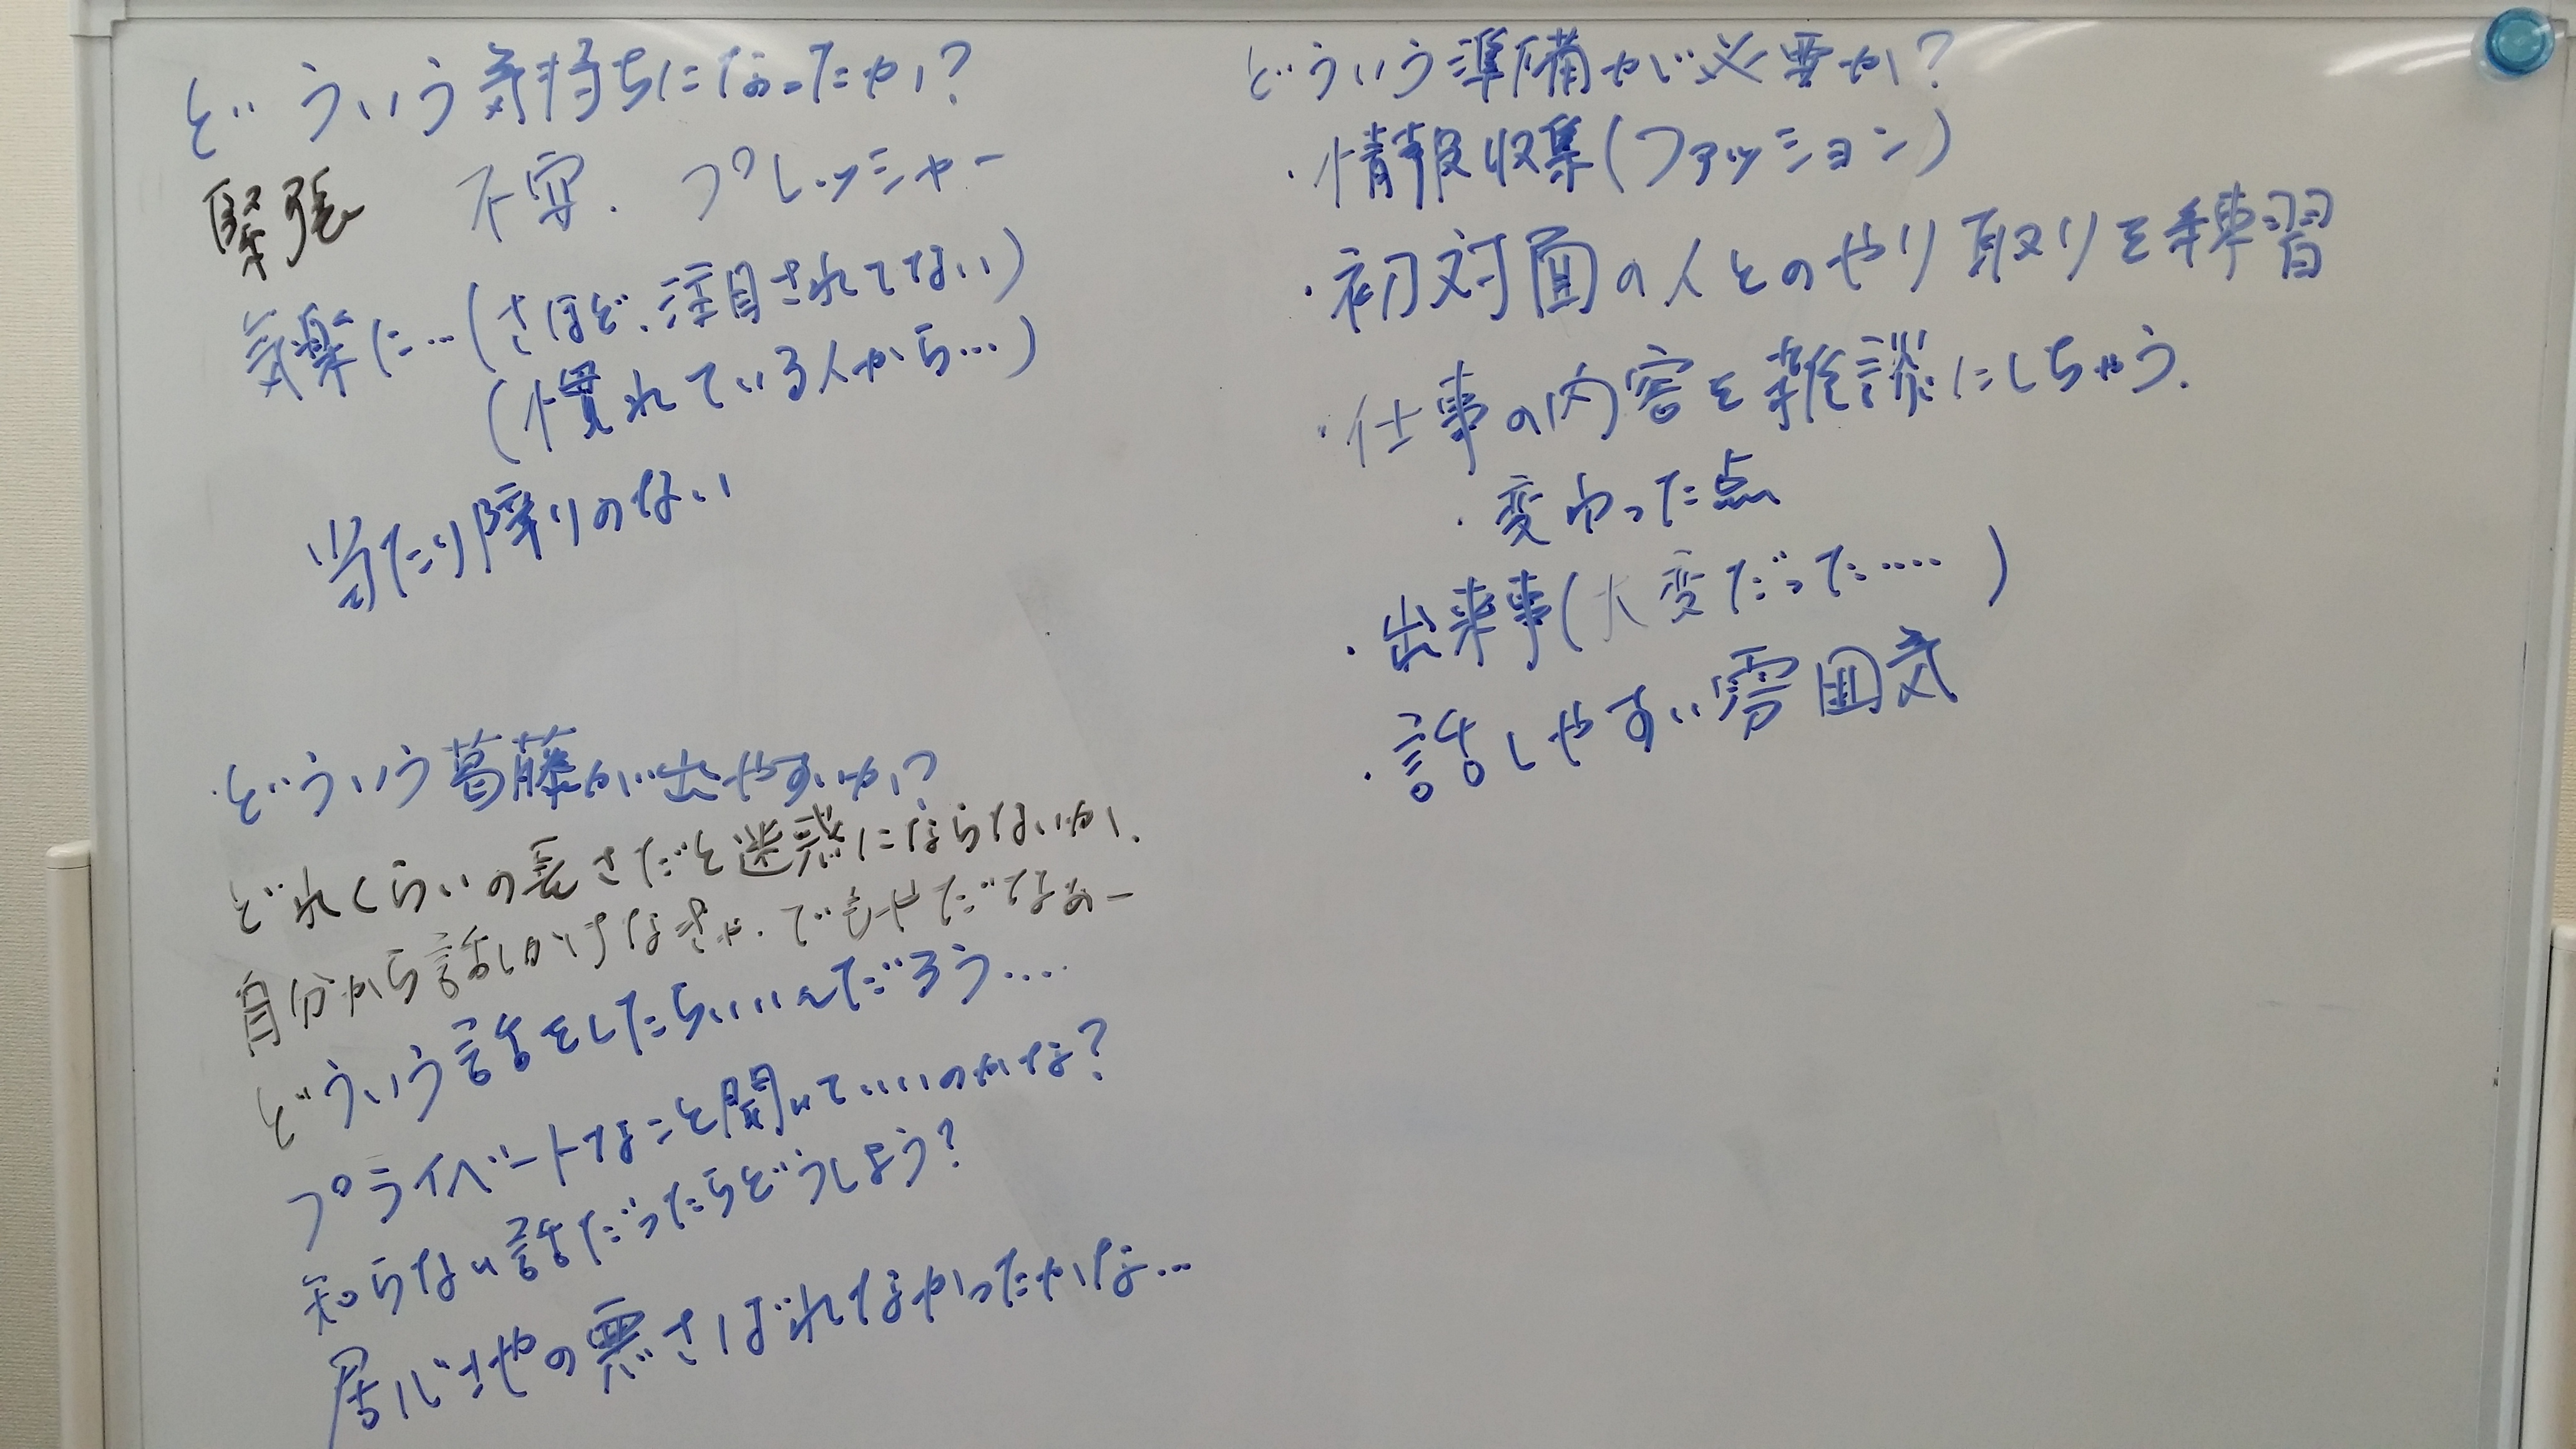 どういう気持ちになったか?
緊張 不安. プレッシャー
気楽に…(さほど、注目されてない)
(慣れている人から…)
当たり障りのない
・どういう葛藤が出やすいか?
どれくらいの長さだと迷惑にならないか、
自分から話しかけなきゃ、でもやだなぁー
どういう話をしたらいいんだろう….
プライベートなこと聞いていいのかな?
知らない話だったらどうしよう?
居心地の悪さばれてなかったかな…
どういう準備が必要か?
・情報収集(ファッション)
・初対面の人とのやり取りを練習
・仕事の内容を雑談にしちゃう.
・変わった点
・出来事(大変だった‥‥)
・話しやすい雰囲気